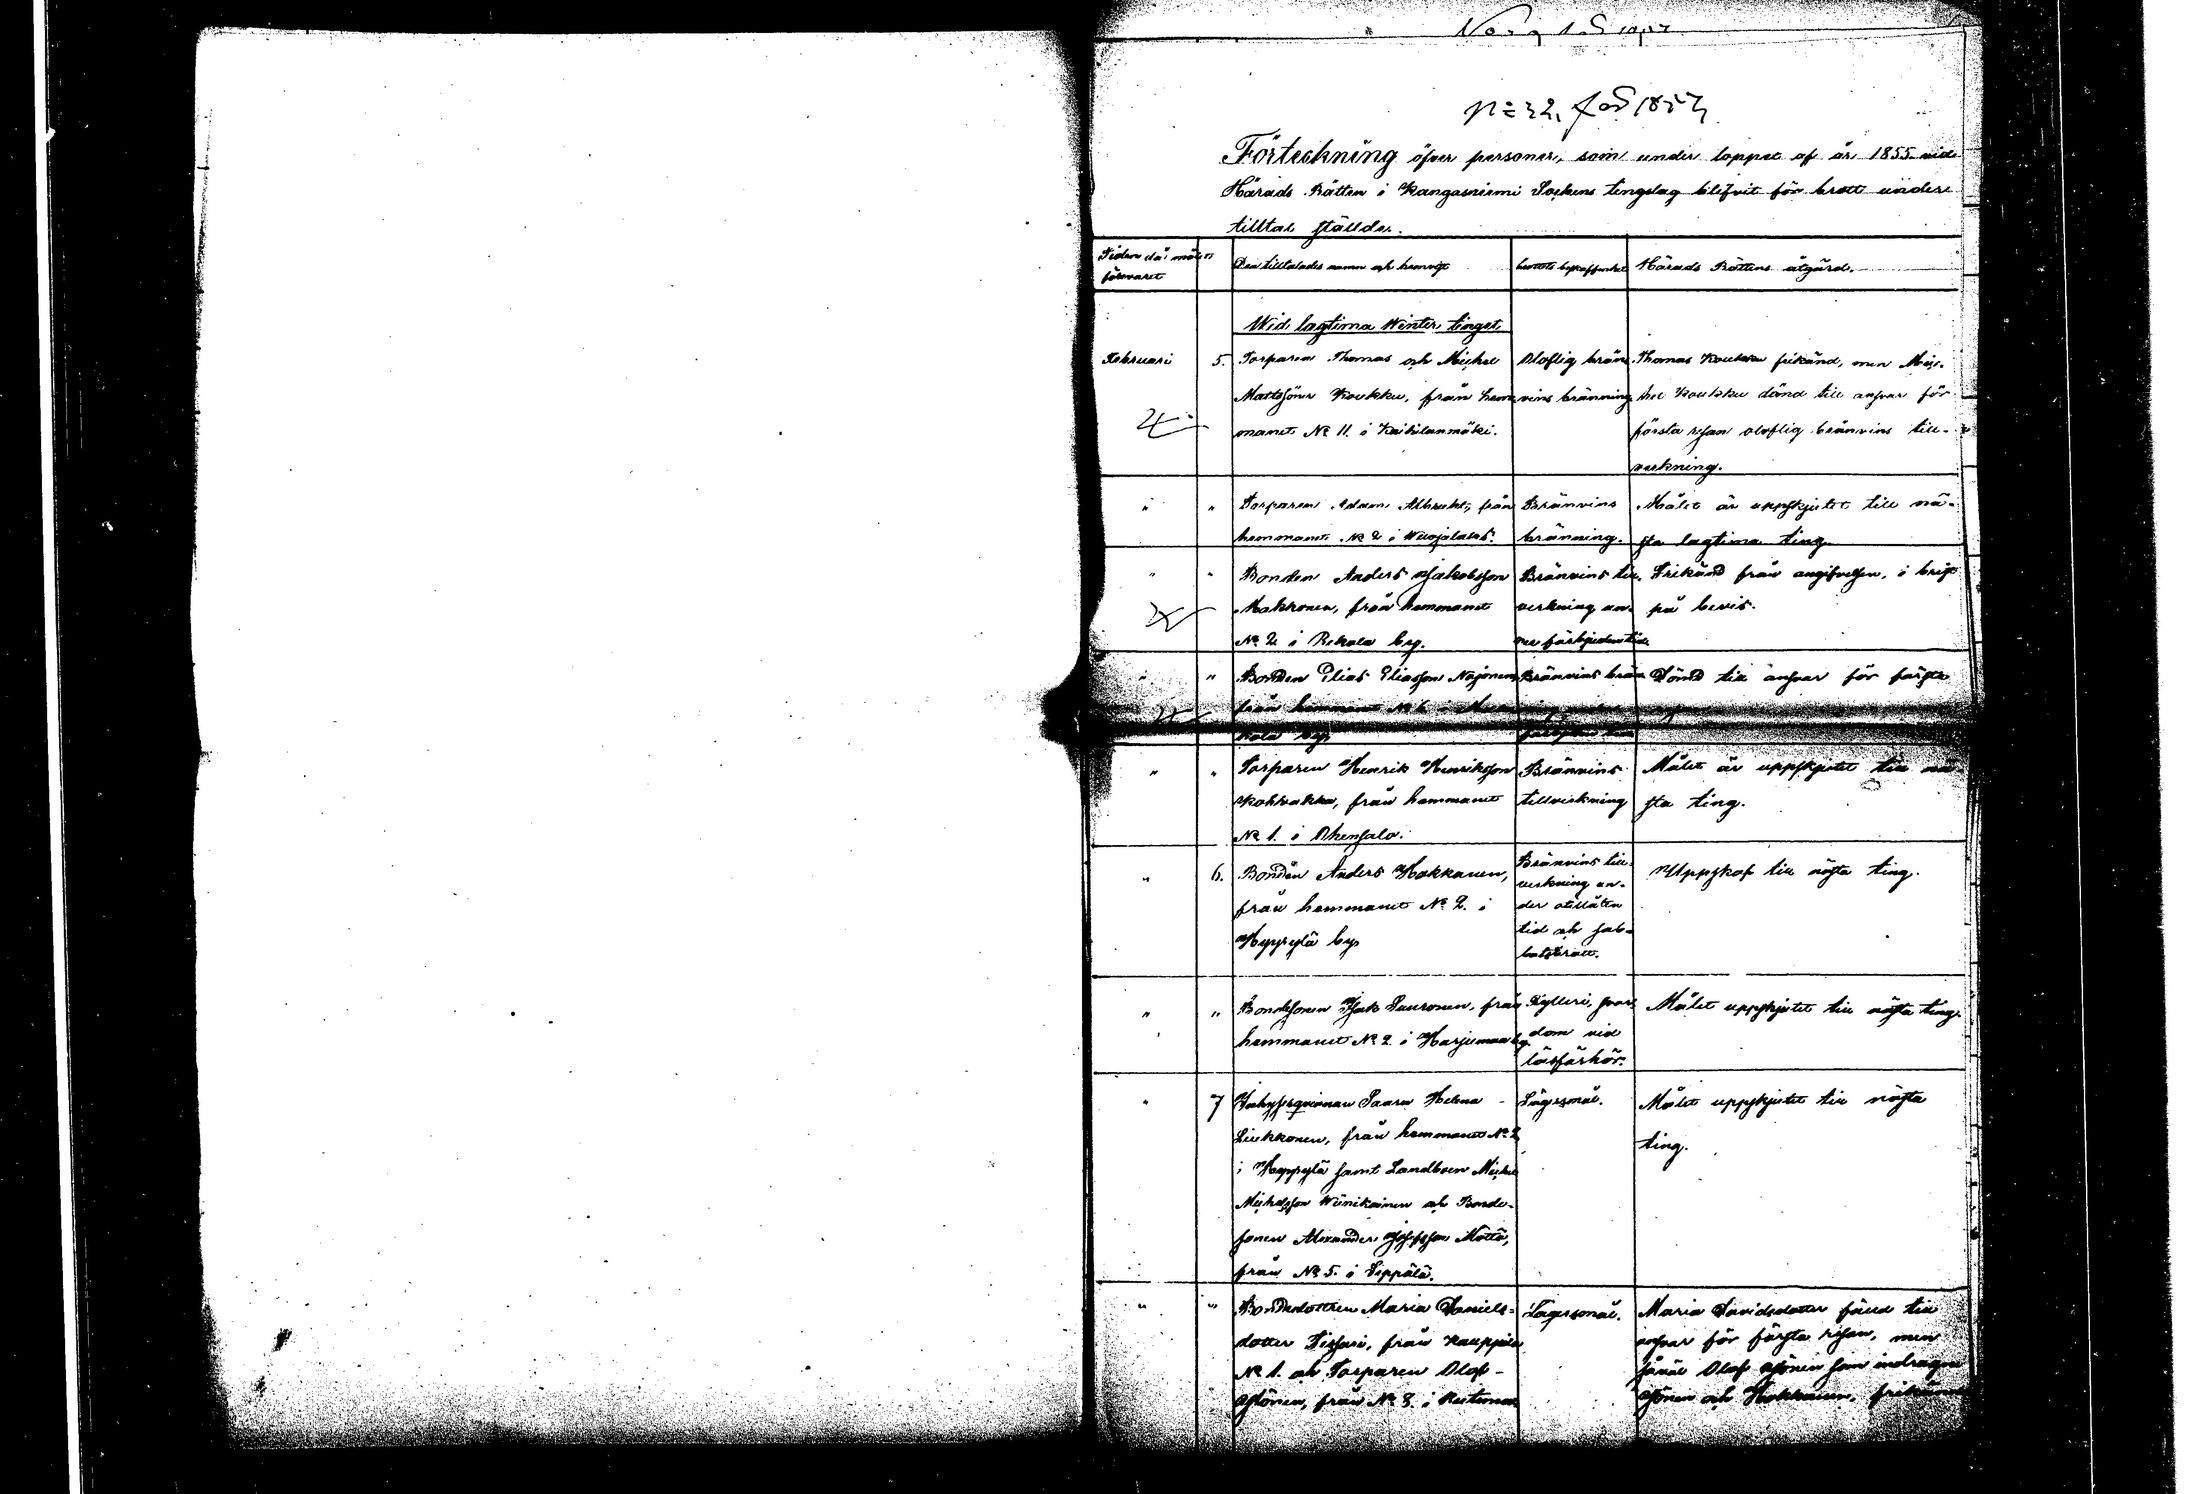 Förteckning öfver personer, som under loppet af år 1855 vid
Härads Rätten i Kangasniemi Sockens tingslag blifvit för brott under
tilltal ställda.
Tiden då målet förevaret
Den tilltalades namn och hemvist
brottets beskaffenhet
Härads Rättens åtgärd.
Wid lagtima Winter tinget
Februari 5. Torparen Thomas och Michel
Mattssöner Koukku, från hem-
manet No 11. i Kaihilanmäki.
Oloflig bränn-
vins bränning
Thomas Koukku frikänd, men Mic-
hel Koukku dömd till ansvar för
första resan oloflig brännvins till-
verkning.
" " Torparen Adam Albrekt, från
hemmanet No 2 i
Brännvins
bränning.
Målet är uppskjutet till nä-
sta lagtima ting.
" " Bonden Anders Jakobsson
Makkonen, från hemmanet
No 2 i Rekola by.
Bränvins till-
verkning un-
der förbjuden tid
Frikänd från angifvelsen, i brist
på bevis.
" " Bonden Elias Eliasson
från hemmanet No 6 i
kala by
Bränvins brän-
Dömd till ansvar för första
" " Torparen Henrik Henriksson
från hemmanet
No 1. i Ohensalo.
Bränvins
tillverkning
Målet är uppskjutet till nä-
sta ting.
" 6. Bonden Anders Hokkanen,
från hemmanet No 2. i
Hyyrylä by
Bränvins till-
verkning un-
der otillåten
tid och sab-
batsbrott.
Uppskof till nästa ting.
" " Bondesonen Isak Tauronen, från
hemmanet No 2 i Harjumaa by
Fylleri, svor-
dom vid
läsförhör.
Målet uppskjutet till nästa ting.
" 7 Inhysesqvinnan Saara Helena
Liukkonen, från hemmanet No 2
i Hyyrylä samt Landboen Michel
Michelsson Wänikainen och Bonde-
sonen Alexander Josefsson Mättö,
från No 5. i Sippälä.
Lägersmål.
Målet uppskjutet till nästa
ting.
" " Bondedottren Maria Daniels-
dotter Tissari, från Kauppila
No 1. och Torparen Olof
från No 3. i
Lägersmål.
Maria Davidsdotter fälld till
ansvar för första resan, men
såväl Olof som indragne
och Hokkanen, frikände